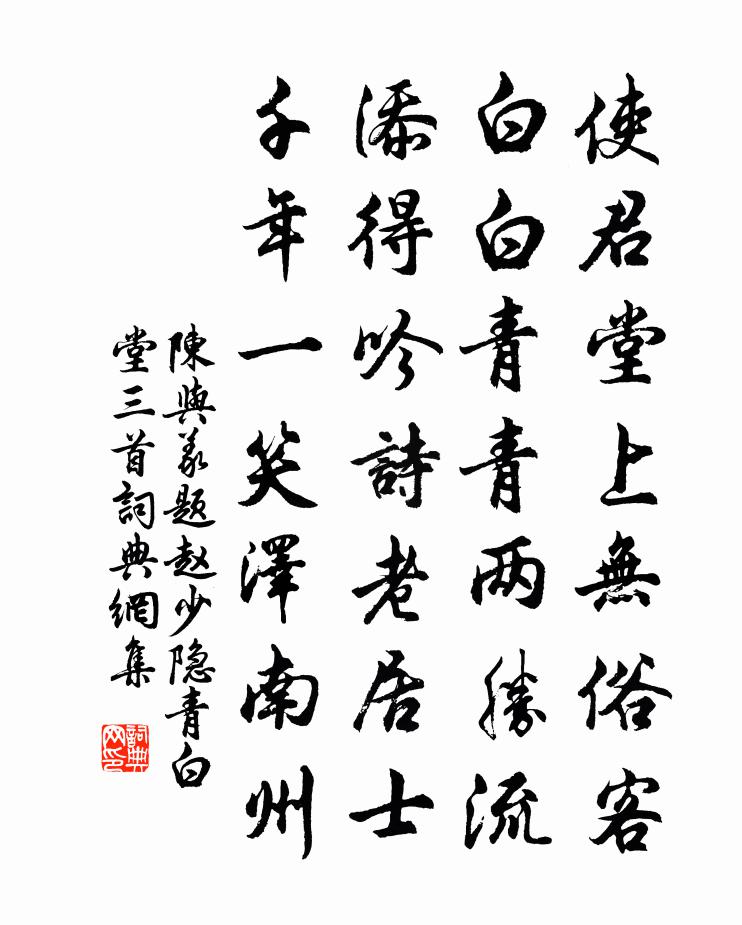 使君堂上無俗客
白白青青两勝流
添得吟詩老居士
千年一笑澤南州
陳與義题赵少隐青白
堂三首詞典網集
詞典网印